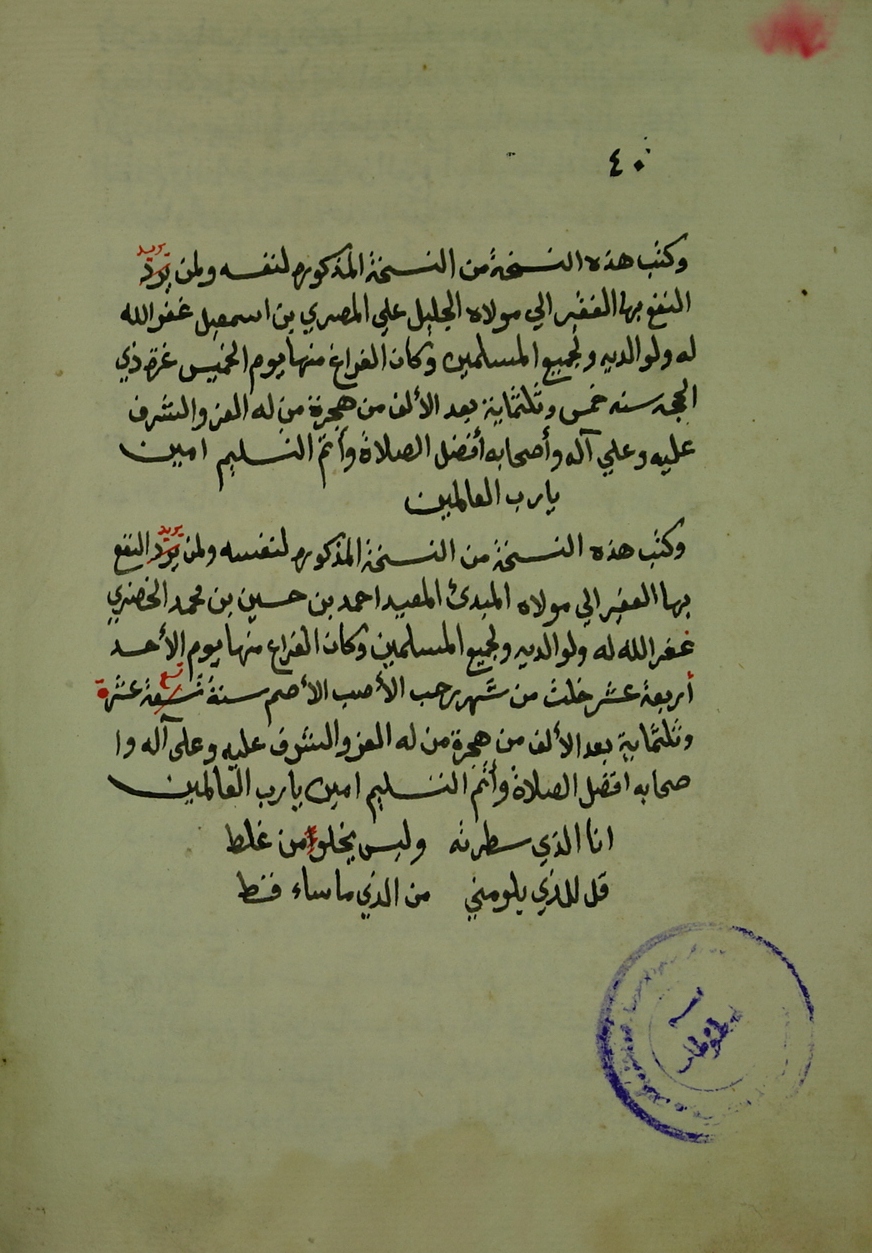 ٤٠
وكتب هذه النسخة من النسخة المذكوره لنفسه ولمن يرد يريد
النفع بها الفقير الي مولاه الجليل علي المصري بن اسمعيل غفر الله
له ولوالديه ولجميع المسلمين وكان الفراغ منها يوم الخميس غرة ذي
الحجه سنه خمس وثلثماية بعد الألف من هجرة من له العز والشرف
عليه وعلي آله وأصحابه أفضل الصلاة وأتم التسليم امين
يارب العالمين
وكتب هذه النسخة من النسخة المذكوره لنفسه ولمن يرد يريد النفع
بها الفقير الي مولاه المبدئ المعيد احمد بن حسين بن محمد الخضري
غفر الله له ولوالديه ولجميع المسلمين وكان الفراغ منها يوم الأحد
أربعة عشر خلت من شهر رجب الأصب الأصم سنة تسعة تسع عشرة
وثلثماية بعد الألف من هجرة من له العز والشرف عليه وعلى آله وا
صحابه افضل الصلاة وأتم التسليم امين يارب العالمين
انا الذي سطرته وليس يخلو من غلط
قل للذي يلومني من الذي ماساء قط